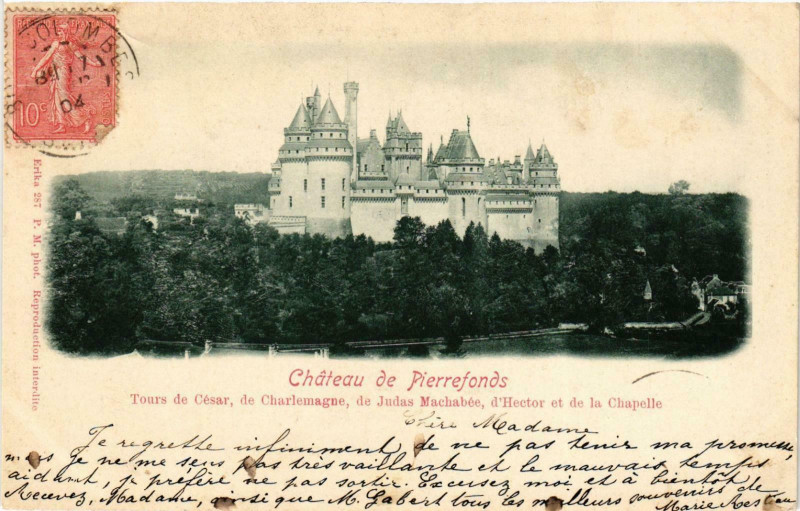 COLOMBES
04
10c
Erika 287 P. M. phot. Reproduction interdite
Château de Pierrefonds
Tours de César, de Charlemagne, de Judas Machabée, d'Hector et de la Chapelle
Chère Madame
Je regrette infiniment de ne pas tenir ma promesse
mais je ne me sens pas très vaillante et le mauvais temps
aidant, je préfère ne pas sortir. Excusez moi et à bientôt
Recevez, Madame, ainsi que M. Gabert tous les meilleurs souvenirs de
Marie